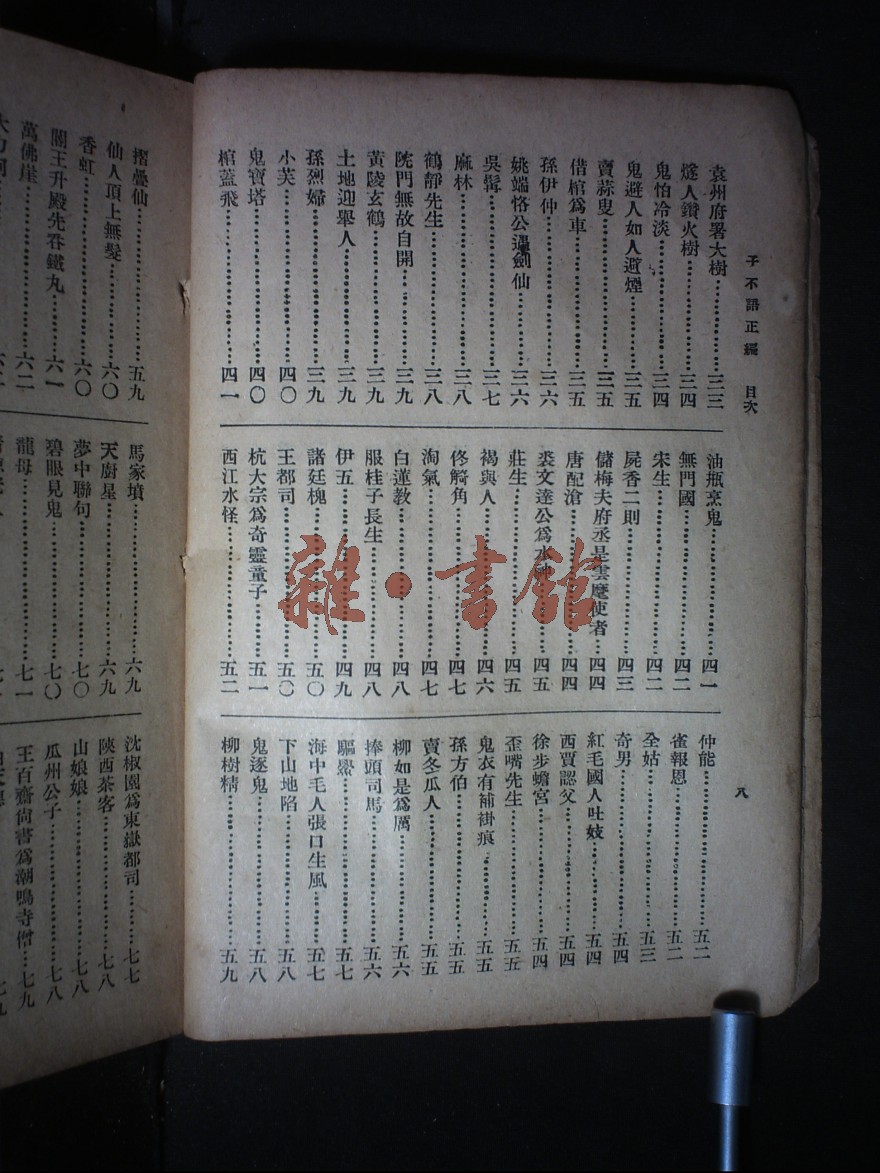 子不語正編　目次
八
袁州府署大樹…………三三
燧人鑽火樹…………三四
鬼怕冷淡…………三四
鬼避人如人避煙…………三五
賣蒜叟…………三五
借棺爲車…………三五
孫伊仲…………三六
姚端恪公遇劍仙…………三六
吳髯…………三七
麻林…………三八
鶴靜先生…………三八
阮門無故自開…………三九
黃陵玄鶴…………三九
土地迎舉人…………三九
孫烈婦…………三九
小芙…………四〇
鬼寶塔…………四〇
棺蓋飛…………四一
油瓶烹鬼…………四一
無門國…………四二
宋生…………四二
屍香二則…………四三
儲梅夫府丞是雲麾使者…………四四
唐配滄…………四四
裘文達公爲水神…………四五
莊生…………四五
褐與人…………四六
佟觭角…………四七
淘氣…………四七
白蓮教…………四八
服桂子長生…………四八
伊五…………四九
諸廷槐…………五〇
王都司…………五〇
杭大宗爲奇靈童子…………五一
西江水怪…………五二
仲能…………五二
雀報恩…………五二
全姑…………五三
奇男…………五四
紅毛國人吐妓…………五四
西賈認父…………五四
徐步蟾宮…………五四
歪嘴先生…………五五
鬼衣有補褂痕…………五五
孫方伯…………五五
賣冬瓜人…………五五
柳如是爲厲…………五六
捧頭司馬…………五六
驅鱟…………五七
海中毛人張口生風…………五七
下山地陷…………五八
鬼逐鬼…………五八
柳樹精…………五九
摺疊仙…………五九
仙人頂上無髮…………六〇
香虹…………六〇
閻王升殿先吞鐵丸…………六一
萬佛崖…………六二
馬家墳…………六九
天廚星…………六九
夢中聯句…………七〇
碧眼見鬼…………七〇
龍母…………七一
沈椒園爲東嶽都司…………七七
陝西茶客…………七八
山娘娘…………七八
瓜州公子…………七八
王百齋尙書爲潮鳴寺僧…………七九
雜·書館